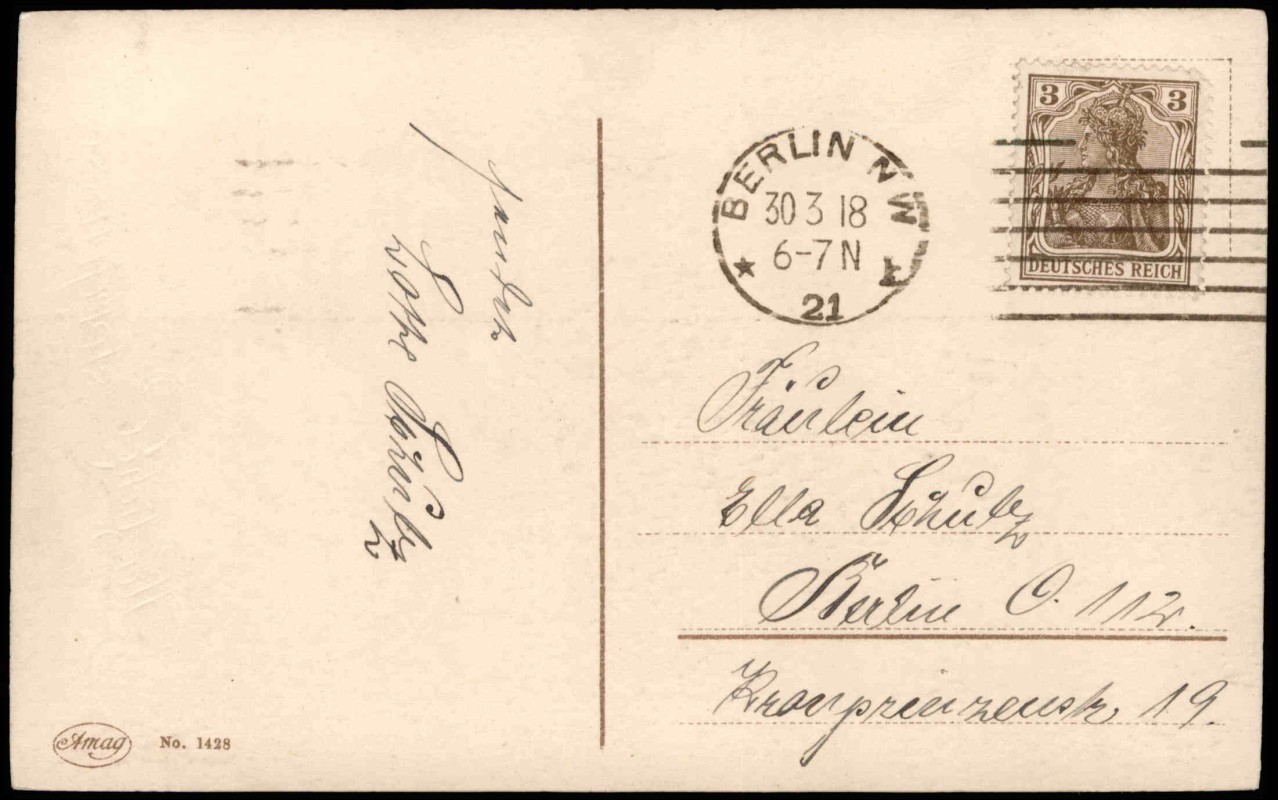 sendet
Lotte Schultz
BERLIN NW
30 3 18
6-7 N
21
3 3
DEUTSCHES REICH
Fräulein
Ella Schultz
Berlin O. 112.
Kronprinzenstr. 19.
Amag No. 1428